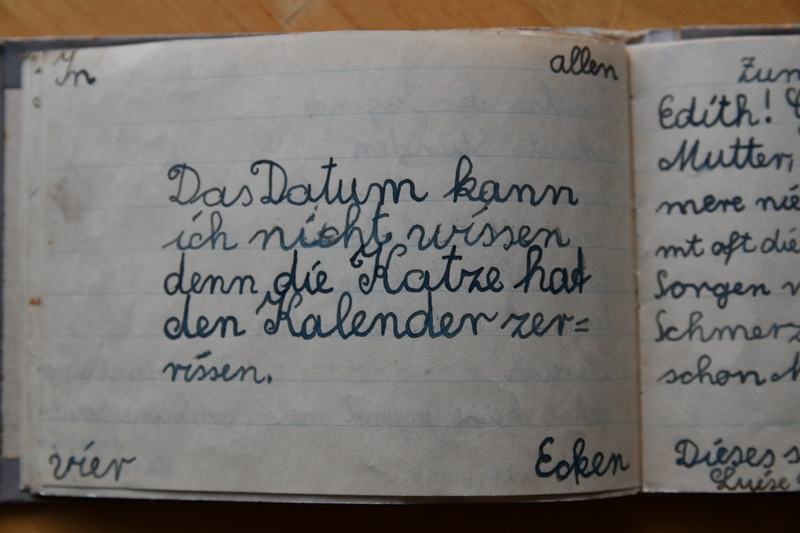 In allen
Das Datum kann
ich nicht wissen
denn die Katze hat
den Kalender zer=
rissen.
vier Ecken
Zum
Edith!
Mutter,
mere nie
mt oft die
Sorgen
Schmerz
schon
Dieses
Luise